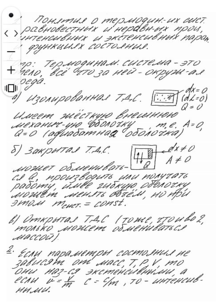 Понятия о термодин-их сист.
равновесных и неравн. проц.
интенсивные и экстенсивные парам.
функциях состояния.
Термодинам. система - это
тело, всё что за ней - окруж-ая
среда.
а) Изолированная Т.Д.С. dx=0
dA=0
Q=0
Имеет жёсткую внешнюю
механич-ую оболочку т.е. A=0,
Q=0 (адиабатная оболочка)
б) Закрытая Т.Д.С. dx≠0
A≠0
может обменивать-
ся Q, производить или получать
работу, имея гибкую оболочку
может менять объём, но при
этом m сист. = const.
в) Открытая Т.Д.С (тоже, что и в 2,
только может обмениваться
массой)
2. Если параметры состояния не
зависят от масс, T, P, V, то
они наз-ся экстенсивными, а
если то - интенсив-
ными.